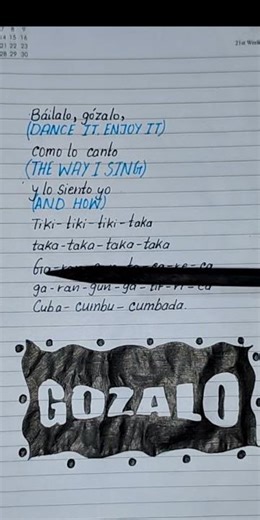 7 8 9
14 15 16
21 22 23
28 29 30
21st Week
Báilalo, gózalo,
(DANCE IT. ENJOY IT)
como lo canto
(THE WAY I SING)
y lo siento yo
(AND HOW)
Tiki-tiki-tiki-taka
taka-taka-taka-taka
ga-ran-gun-ga-
Cuba-cuinbu-cumbada.
GOZALO